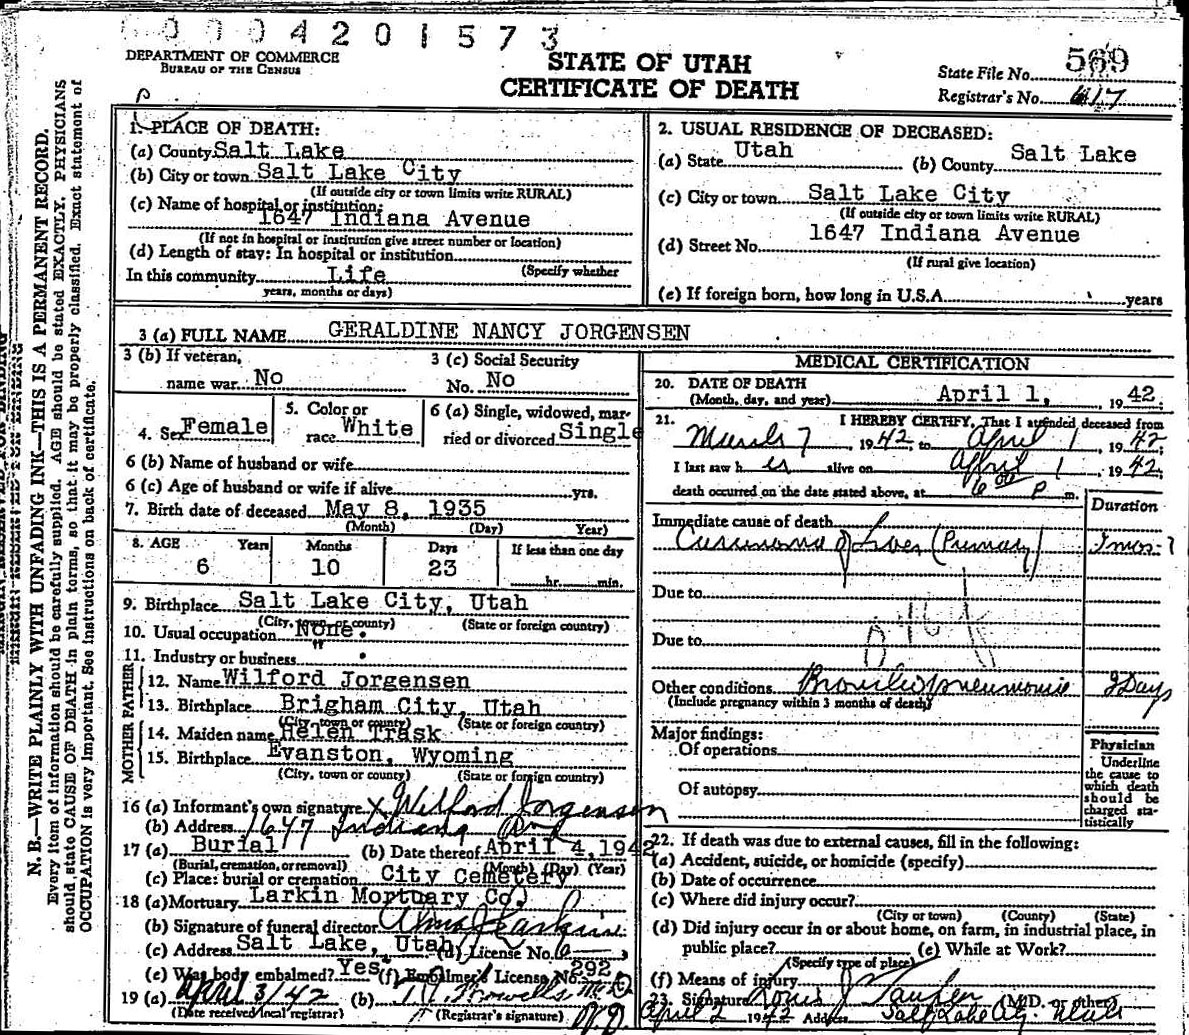 0004201573
DEPARTMENT OF COMMERCE
BUREAU OF THE CENSUS
STATE OF UTAH
CERTIFICATE OF DEATH
State File No. 569
Registrar's No. 617
N. B.—WRITE PLAINLY WITH UNFADING INK—THIS IS A PERMANENT RECORD.
Every item of information should be carefully supplied. AGE should be stated EXACTLY. PHYSICIANS
should state CAUSE OF DEATH in plain terms, so that it may be properly classified. Exact statement of
OCCUPATION is very important. See instructions on back of certificate.
1. PLACE OF DEATH:
(a) County Salt Lake
(b) City or town Salt Lake City
(If outside city or town limits write RURAL)
(c) Name of hospital or institution:
1647 Indiana Avenue
(If not in hospital or institution give street number or location)
(d) Length of stay: In hospital or institution
(Specify whether
In this community Life
years, months or days)
2. USUAL RESIDENCE OF DECEASED:
(a) State Utah (b) County Salt Lake
(c) City or town Salt Lake City
(If outside city or town limits write RURAL)
(d) Street No. 1647 Indiana Avenue
(If rural give location)
(e) If foreign born, how long in U.S.A. years
3 (a) FULL NAME GERALDINE NANCY JORGENSEN
3 (b) If veteran, name war No
3 (c) Social Security No. No
4. Sex Female
5. Color or race White
6 (a) Single, widowed, married or divorced Single
6 (b) Name of husband or wife
6 (c) Age of husband or wife if alive yrs.
7. Birth date of deceased May 8, 1935
(Month) (Day) Year)
8. AGE Years Months Days If less than one day
6 10 23 hr. min.
9. Birthplace Salt Lake City, Utah
(City, town or county) (State or foreign country)
10. Usual occupation None.
11. Industry or business "
FATHER
12. Name Wilford Jorgensen
13. Birthplace Brigham City, Utah
(City, town or county) (State or foreign country)
MOTHER
14. Maiden name Helen Trask
15. Birthplace Evanston, Wyoming
(City, town or county) (State or foreign country)
16 (a) Informant's own signature X Wilford Jorgensen
(b) Address 1647 Indiana Ave
17 (a) Burial (b) Date thereof April 4, 1942
(Burial, cremation, or removal) (Month) (Day) (Year)
(c) Place: burial or cremation City Cemetery
18 (a) Mortuary Larkin Mortuary Co.
(b) Signature of funeral director Alma J Larkin
(c) Address Salt Lake, Utah (d) License No. 6
(e) Was body embalmed? Yes (f) Embalmer's License No. 292
19 (a) April 3/42 (b) M.D.
(Date received local registrar) (Registrar's signature)
MEDICAL CERTIFICATION
20. DATE OF DEATH
(Month, day, and year) April 1, 1942;
21. I HEREBY CERTIFY, That I attended deceased from
March 7, 1942, to April 1, 1942;
I last saw her alive on April 1, 1942;
death occurred on the date stated above, at 6 00 P m.
Duration
Immediate cause of death
Carcinoma of Liver (Primary)
Due to
Due to
Other conditions Bronchopneumonia 2 Days
(Include pregnancy within 3 months of death)
Major findings:
Of operations
Of autopsy
Physician
Underline
the cause to
which death
should be
charged sta-
tistically
22. If death was due to external causes, fill in the following:
(a) Accident, suicide, or homicide (specify)
(b) Date of occurrence
(c) Where did injury occur?
(City or town) (County) (State)
(d) Did injury occur in or about home, on farm, in industrial place, in
public place? (e) While at Work?
(Specify type of place)
(f) Means of injury
23. Signature (M.D. or other)
April 2 1942 Address Salt Lake City, Utah